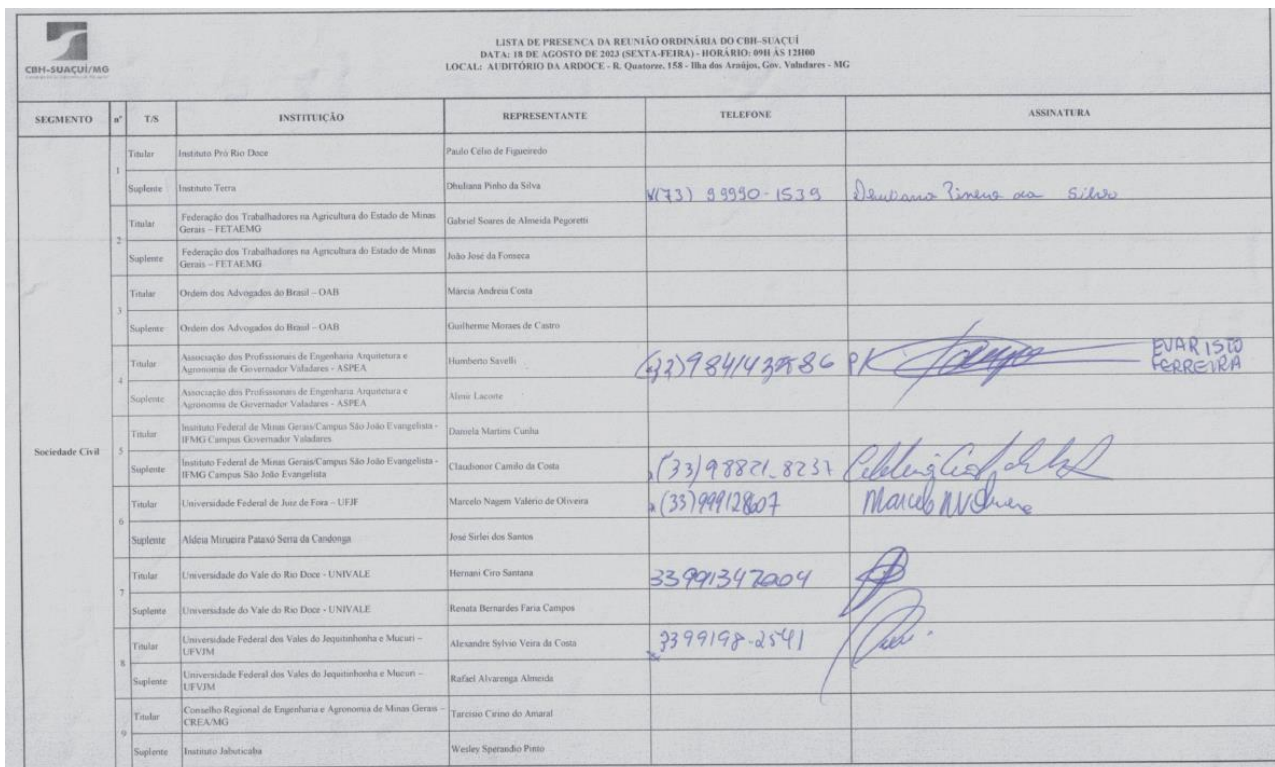 CBH-SUAÇUÍ/MG
LISTA DE PRESENÇA DA REUNIÃO ORDINÁRIA DO CBH-SUAÇUÍ
DATA: 18 DE AGOSTO DE 2023 (SEXTA-FEIRA) - HORÁRIO: 09H ÀS 12H00
LOCAL: AUDITÓRIO DA ARDOCE - R. Quatorze, 158 - Ilha dos Araújos, Gov. Valadares - MG
SEGMENTO nº T/S INSTITUIÇÃO REPRESENTANTE TELEFONE ASSINATURA
Sociedade Civil
1
Titular Instituto Pró Rio Doce Paulo Célio de Figueiredo
Suplente Instituto Terra Dhuliana Pinho da Silva (73) 99990-1539 da Silva
2
Titular Federação dos Trabalhadores na Agricultura do Estado de Minas
Gerais – FETAEMG Gabriel Soares de Almeida Pegoretti
Suplente Federação dos Trabalhadores na Agricultura do Estado de Minas
Gerais – FETAEMG João José da Fonseca
3
Titular Ordem dos Advogados do Brasil – OAB Márcia Andreia Costa
Suplente Ordem dos Advogados do Brasil – OAB Guilherme Moraes de Castro
4
Titular Associação dos Profissionais de Engenharia Arquitetura e
Agronomia de Governador Valadares - ASPEA Humberto Savelli EVARISTO
FERREIRA
Suplente Associação dos Profissionais de Engenharia Arquitetura e
Agronomia de Governador Valadares - ASPEA Almir Lacorte
5
Titular Instituto Federal de Minas Gerais/Campus São João Evangelista -
IFMG Campus Governador Valadares Daniela Martins Cunha
Suplente Instituto Federal de Minas Gerais/Campus São João Evangelista -
IFMG Campus São João Evangelista Claudionor Camilo da Costa (33) 98821-8237
6
Titular Universidade Federal de Juiz de Fora – UFJF Marcelo Nagem Valério de Oliveira (33) 999128607 Marcelo NVOliveira
Suplente Aldeia Mirueira Pataxó Serra da Candonga José Sirlei dos Santos
7
Titular Universidade do Vale do Rio Doce - UNIVALE Hernani Ciro Santana 33991347004
Suplente Universidade do Vale do Rio Doce - UNIVALE Renata Bernardes Faria Campos
8
Titular Universidade Federal dos Vales do Jequitinhonha e Mucuri –
UFVJM Alexandre Sylvio Veira da Costa 3399198-2541
Suplente Universidade Federal dos Vales do Jequitinhonha e Mucuri –
UFVJM Rafael Alvarenga Almeida
9
Titular Conselho Regional de Engenharia e Agronomia de Minas Gerais –
CREA/MG Tarcisio Cirino do Amaral
Suplente Instituto Jabuticaba Wesley Sperandio Pinto